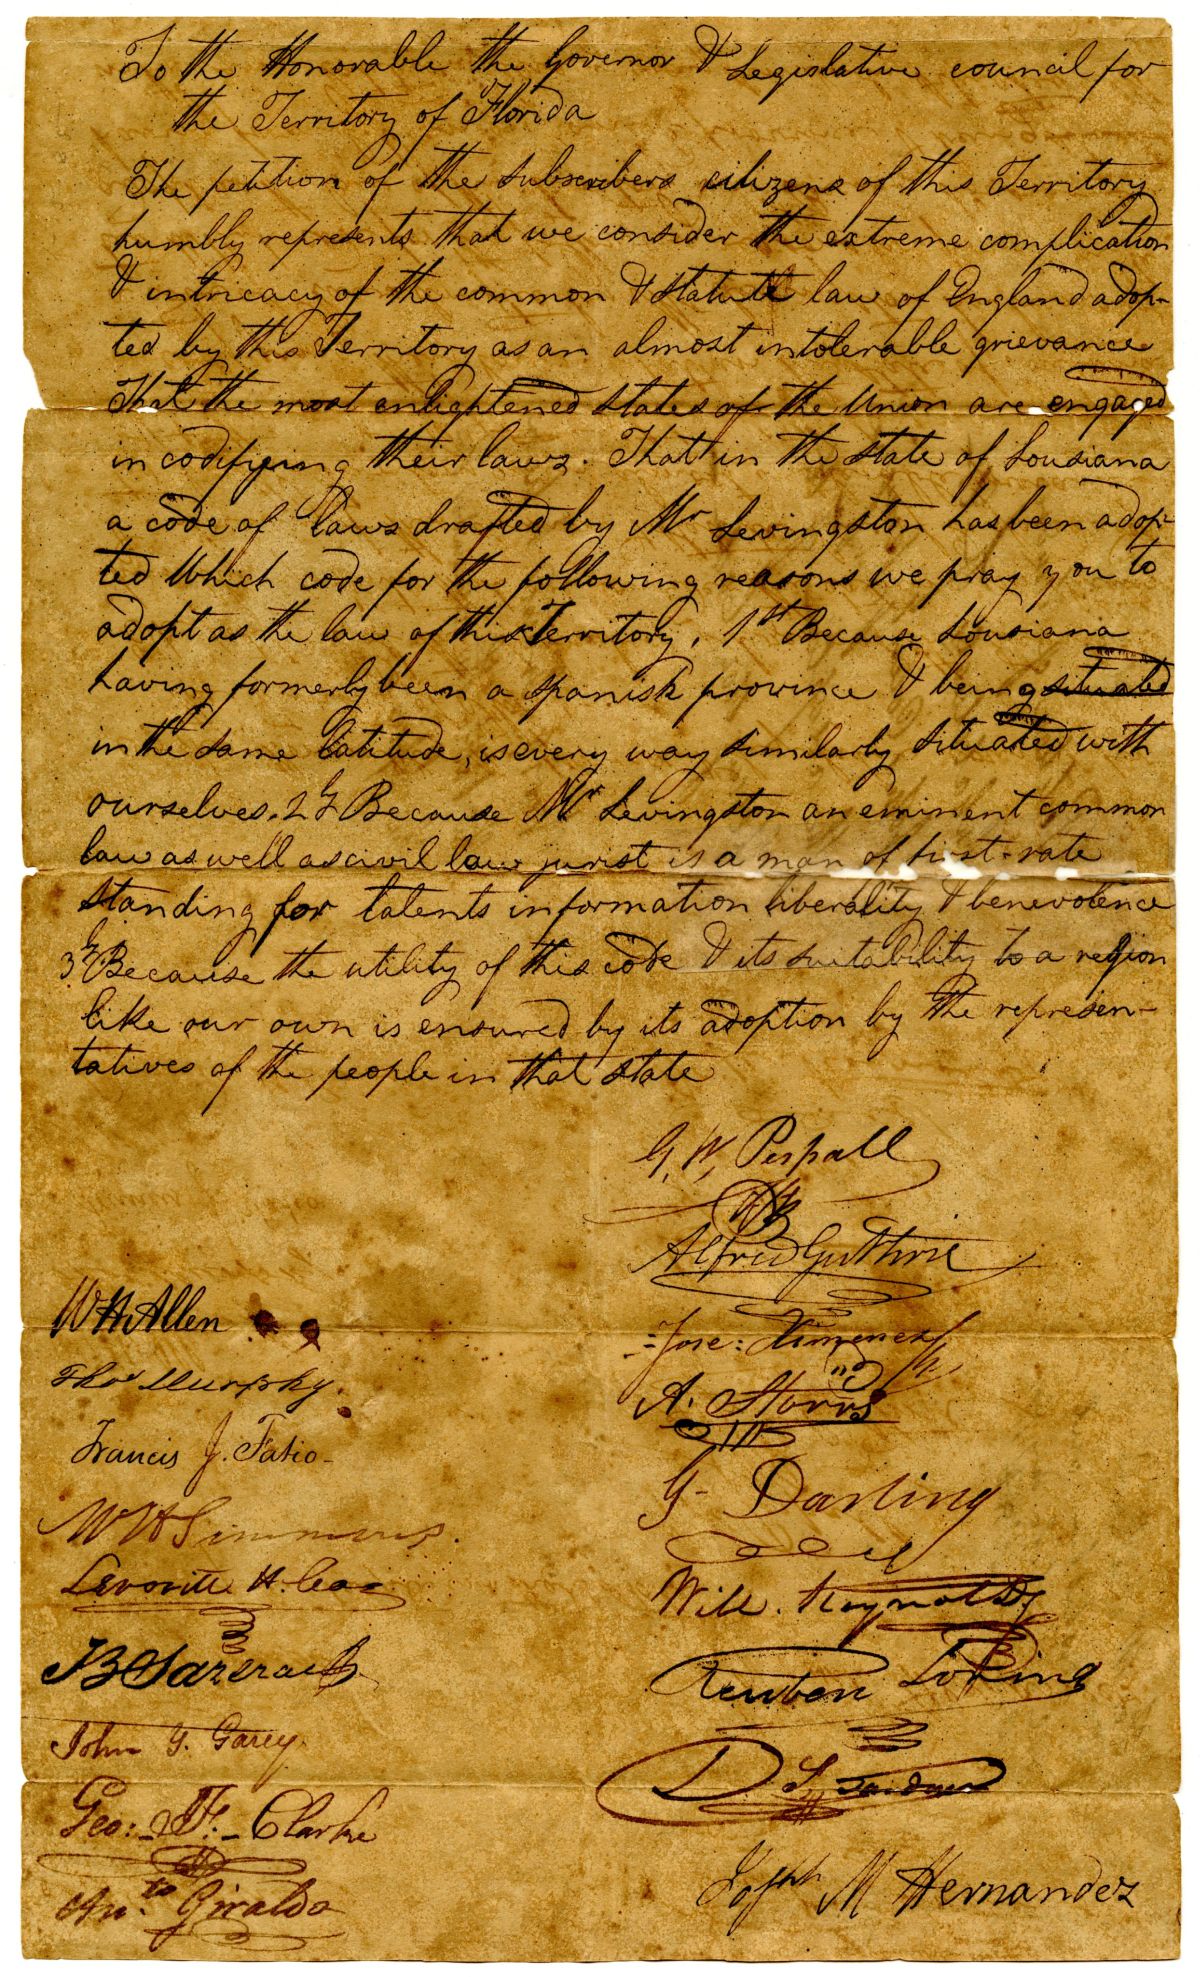 To the Honorable the Governor & Legislative council for
the Territory of Florida
The petition of the subscribers citizens of this Territory
humbly represents that we consider the extreme complication
& intricacy of the common & statute law of England adop-
ted by this Territory as an almost intolerable grievance
That the most enlightened states of the Union are engaged
in codifying their laws. That in the state of Lousiana
a code of laws drafted by Mr Levingston has been adop-
ted Which code for the following reasons we pray you to
adopt as the law of this Territory. 1st Because Lousiana
having formerly been a spanish province & being situated
in the same latitude, is every way similarly situated with
ourselves. 2d Because Mr Levingston an eminent common
law as well as civil law jurist is a man of first-rate
standing for talents information liberality & benevolence
3d Because the utility of this code & its suitability to a region
like our own is ensured by its adoption by the represen-
tatives of the people in that state
G. W. Perpall
Alfred Guthrie
Jose: Ximenez
A. Storrs
G- Darling
Will. Reynolds
Reuben Loring
D S Gardner
Joseph M Hernandez
W H Allen
Thos Murphy.
Francis J. Fatio-
W H Simmons.
Levoritt H. Coe
J B Sazerac
John G. Garey.
Geo:- J F:- Clarke
Anto. Giraldo